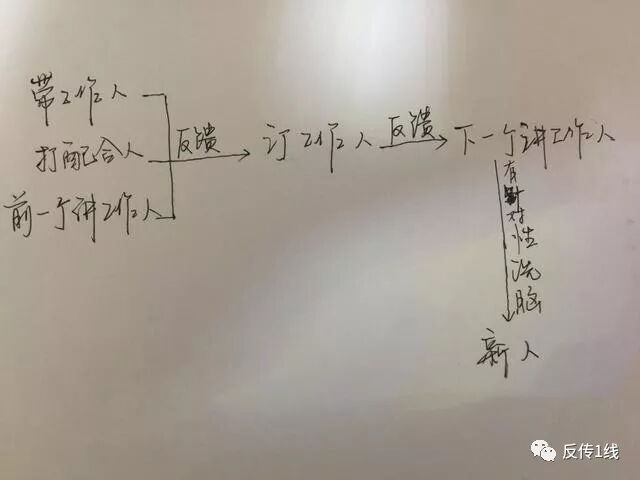 带工作人
打配合人
前一个讲工作人
反馈
订工作人
反馈
下一个讲工作人
有针对性洗脑
新人
反传1线